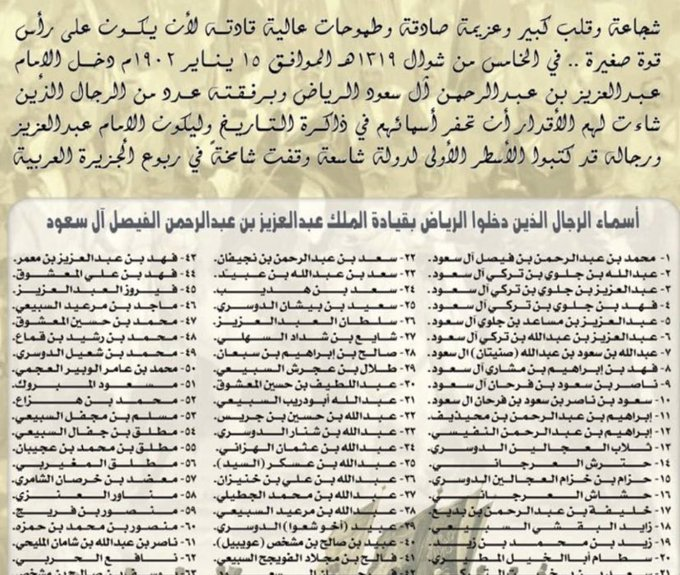 شجاعة وقلب كبير وعزيمة صادقة وطموحات عالية قادته لأن يكون على رأس
قوة صغيرة .. في الخامس من شوال ١٣١٩هـ الموافق ١٥ يناير ١٩٠٢م دخل الامام
عبدالعزيز بن عبدالرحمن آل سعود الرياض وبرفقته عدد من الرجال الذين
شاءت لهم الأقدار أن تحفر أسمائهم في ذاكرة التاريخ وليكون الامام عبدالعزيز
ورجاله قد كتبوا الأسطر الأولى لدولة شاسعة وقفت شامخةً في ربوع الجزيرة العربية
أسماء الرجال الذين دخلوا الرياض بقيادة الملك عبدالعزيز بن عبدالرحمن الفيصل آل سعود
١- محمد بن عبدالرحمن بن فيصل آل سعود.
٢- عبدالله بن جلوي بن تركي آل سعود.
٣- عبدالعزيز بن جلوي بن تركي آل سعود.
٤- فهد بن جلوي بن تركي آل سعود.
٥- عبدالعزيز بن مساعد بن جلوي آل سعود.
٦- عبدالعزيز بن عبدالله بن تركي آل سعود.
٧- عبدالله بن سعود بن عبدالله (صنيتان) ال سعود.
٨- فهد بن إبراهيم بن مشاري آل سعود.
٩- ناصر بن سعود بن فرحان آل سعود.
١٠- سعود بن ناصر بن سعود بن فرحان آل سعود
١١- إبراهيم بن عبدالرحمن بن محيذيف.
١٢- إبراهيم بن عبدالرحمن النفيسي.
١٣- ثلاب العجالين الدوسري.
١٤- حترش العرجاني.
١٥- حزام بن خزام العجالين الدوسري.
١٦- حشاش العرجاني.
١٧- خليفة بن عبدالرحمن بن بديع.
١٨- زايد البقشي السبيعي.
١٩- زيد بن محمد بن زيد.
٢٠- سطام أباالخيل المطيري.
٢٢- سعد بن عبدالرحمن بن نجيفان.
٢٣- سعد بن عبدالله بن عبيد.
٢٤- سعد بن هديب.
٢٥- سعيد بن بيشان الدوسري.
٢٦- سلطان العبدالعزيز.
٢٧- شايع بن شداد السهلي.
٢٨- صالح بن إبراهيم بن سبعان.
٢٩- طلال بن عجرش السبيعي.
٣٠- عبداللطيف بن حسين المعشوق.
٣١- عبدالله أبودريب السبيعي.
٣٢- عبدالله بن حسين بن جريس.
٣٣- عبدالله بن شنار الدوسري.
٣٤- عبدالله بن عثمان الهزاني.
٣٥- عبدالله بن عسكر (السيد).
٣٦- عبدالله بن علي بن خنيزان.
٣٧- عبدالله بن محمد الجطيلي.
٣٨- عبدالله بن مرعيد السبيعي.
٣٩- عبيد (أخو شعوا) الدوسري.
٤٠- عبيد بن صالح بن مشخص (عويبيل).
٤١- فالح بن مجلاد الفويجح السبيعي.
٤٣- فهد بن عبدالعزيز بن معمر.
٤٤- فهد بن علي المعشوق.
٤٥- فيروز العبدالعزيز.
٤٦- ماجد بن مرعيد السبيعي.
٤٧- محمد بن حسين المعشوق.
٤٨- محمد بن رشيد بن قماع.
٤٩- محمد بن شعيل الدوسري.
٥٠- محمد بن عامر الوبير العجمي.
٥١- مسعود المبروك.
٥٢- محمد بن هزاع.
٥٣- مسلم بن مجفل السبيعي.
٥٤- مطلق بن جفال السبيعي.
٥٥- مطلق بن محمد بن عجيبان.
٥٦- مطلق المغيربي.
٥٧- معضد بن خرصان الشامري.
٥٨- مناور العنزي.
٥٩- منصور بن فريج.
٦٠- منصور بن محمد بن حمزه.
٦١- ناصر بن عبدالله بن شامان المليحي.
٦٢- نافع الحربي.